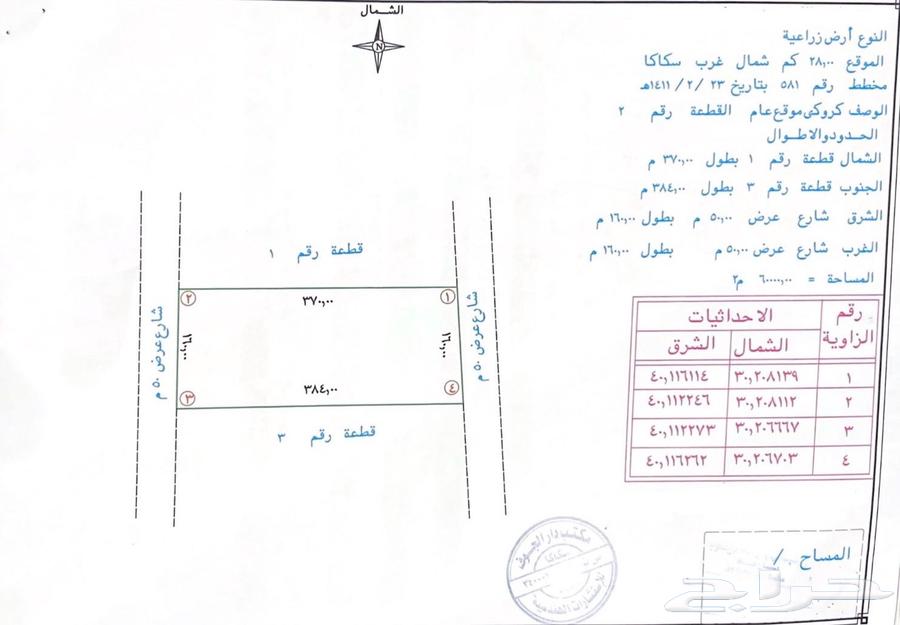 الشمال
N
النوع أرض زراعية
الموقع ٢٨,٠٠ كم شمال غرب سكاكا
مخطط رقم ٥٨١ بتاريخ ٢٣ / ٢ / ١٤١١هـ
الوصف كروكى موقع عام القطعة رقم ٢
الحدود والاطوال
الشمال قطعة رقم ١ بطول ٣٧٠,٠٠ م
الجنوب قطعة رقم ٣ بطول ٣٨٤,٠٠ م
الشرق شارع عرض ٥٠,٠٠ م بطول ١٦٠,٠٠ م
الغرب شارع عرض ٥٠,٠٠ م بطول ١٦٠,٠٠ م
المساحة = ٦٠٠٠٠,٠٠ م٢
رقم الزاوية الاحداثيات
الشمال الشرق
١ ٣٠,٢٠٨١٣٩ ٤٠,١١٦١١٤
٢ ٣٠,٢٠٨١١٢ ٤٠,١١٢٢٤٦
٣ ٣٠,٢٠٦٦٦٧ ٤٠,١١٢٢٧٣
٤ ٣٠,٢٠٦٧٠٣ ٤٠,١١٦٢٦٢
قطعة رقم ١
١
٣٧٠,٠٠
٢
شارع عرض ٥٠ م
١٦٠,٠٠
١٦٠,٠٠
شارع عرض ٥٠ م
٤
٣٨٤,٠٠
٣
قطعة رقم ٣
مكتب دار الجوف
سكاكا
للاستشارات الهندسية
المساح /
حراج